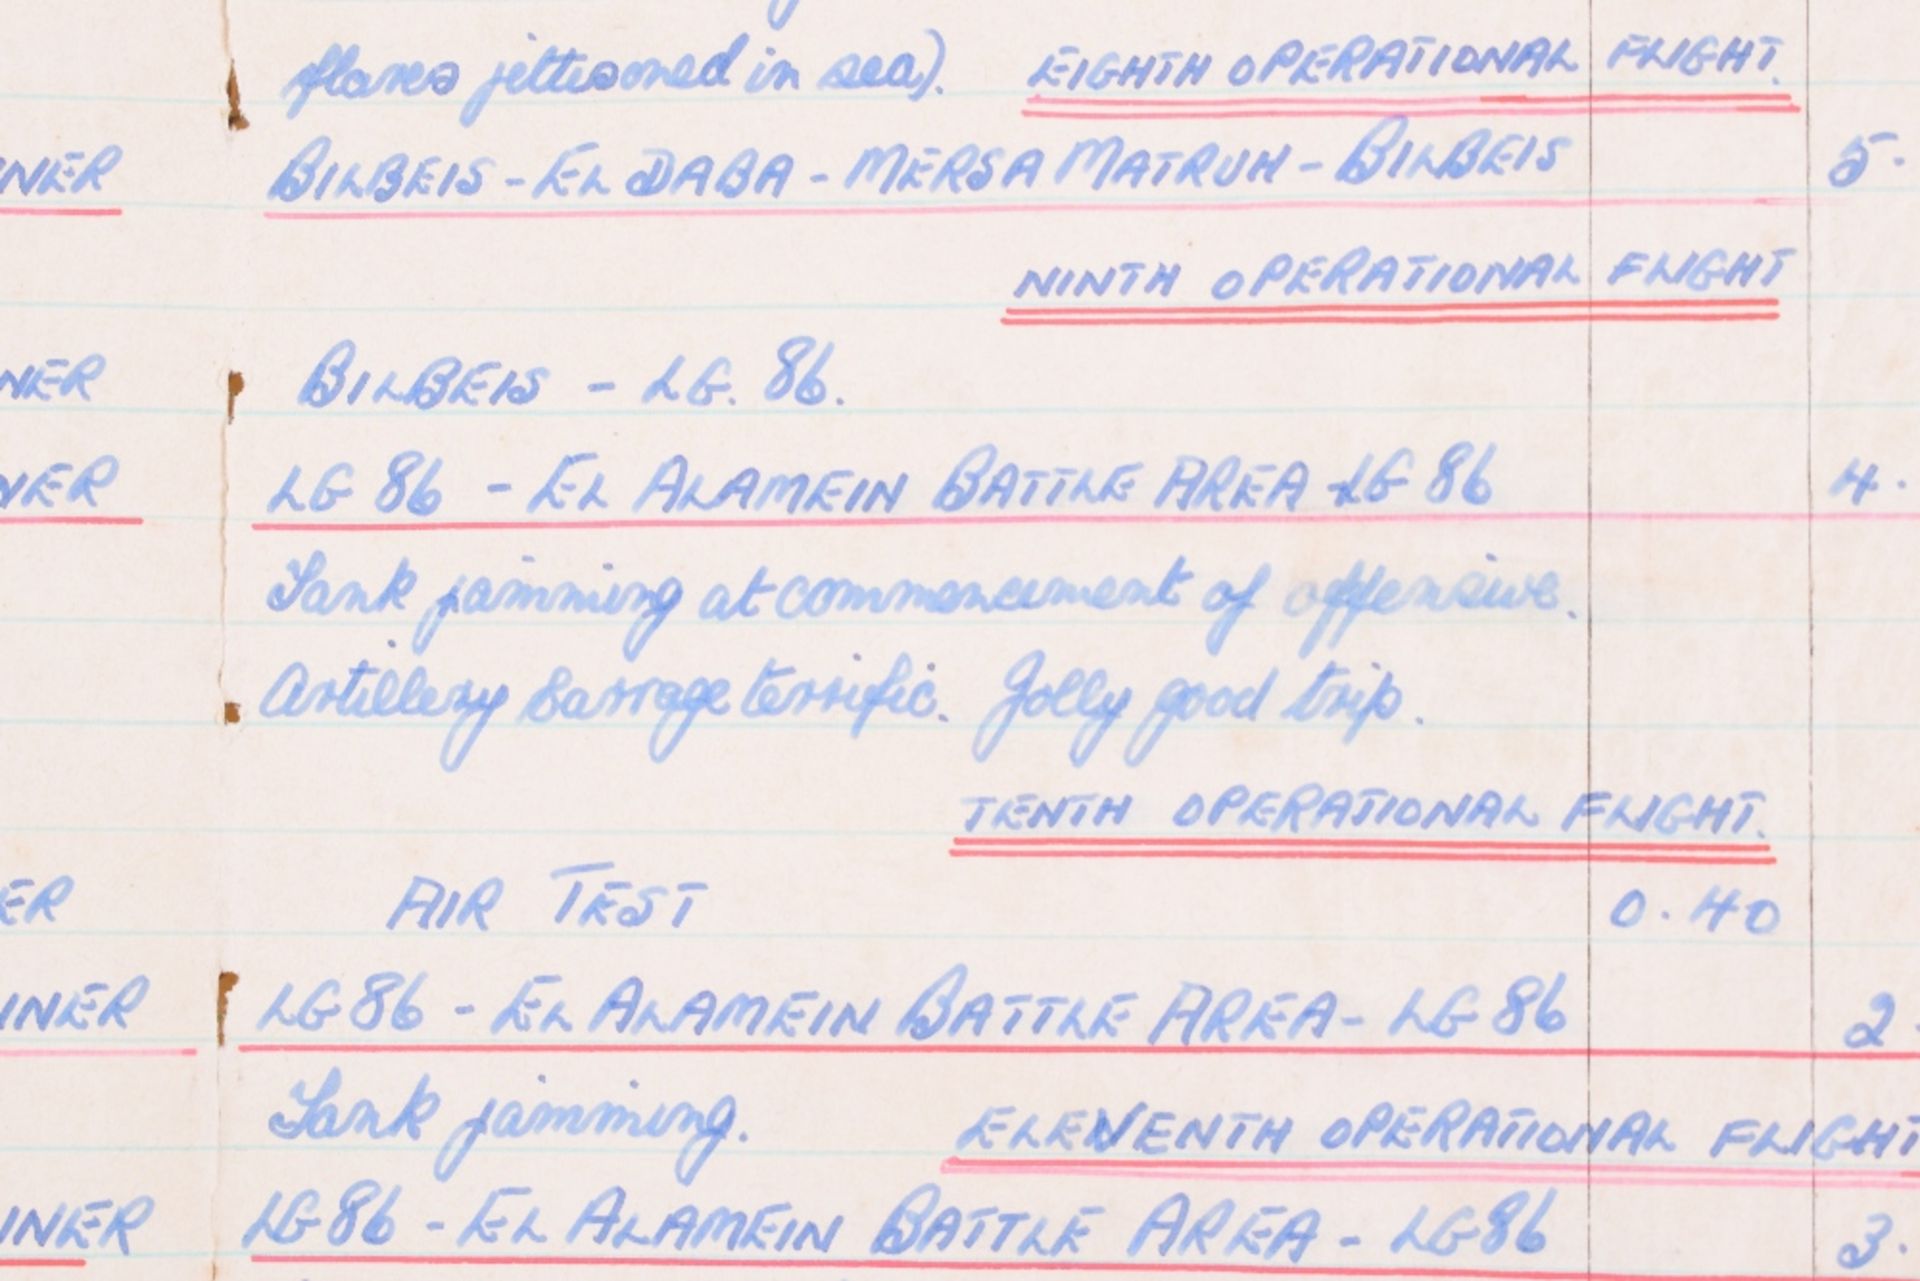 flares jettisoned in sea). EIGHTH OPERATIONAL FLIGHT.
NER BILBEIS - EL DABA - MERSA MATRUH - BILBEIS 5.
NINTH OPERATIONAL FLIGHT
NER BILBEIS - LG. 86.
NER LG 86 - EL ALAMEIN BATTLE AREA - LG 86 4.
Tank jamming at commencement of offensive.
Artillery barrage terrific. Jolly good trip.
TENTH OPERATIONAL FLIGHT.
ER AIR TEST 0.40
INER LG 86 - EL ALAMEIN BATTLE AREA - LG 86 2.
Tank jamming. ELEVENTH OPERATIONAL FLIGHT
INER LG 86 - EL ALAMEIN BATTLE AREA - LG 86 3.